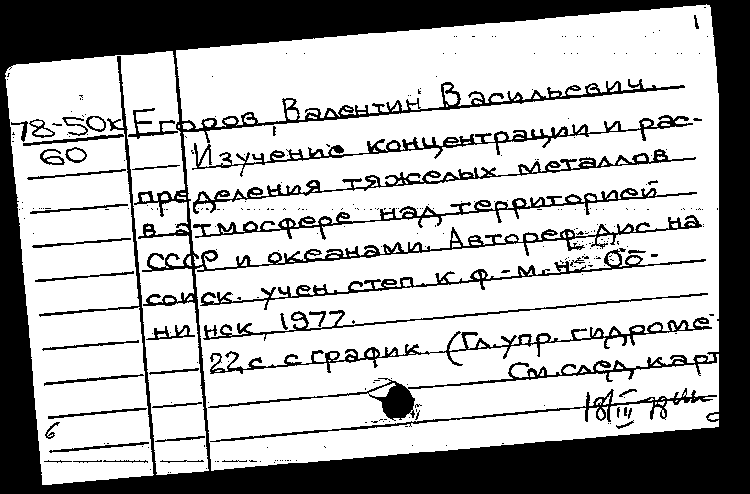 1
78-50к Егоров, Валентин Васильевич.
60 Изучение концентрации и рас-
пределения тяжелых металлов
в атмосфере над территорией
СССР и океанами. Автореф. дис на
соиск. учен. степ. к. ф.-м. н. Об-
нинск, 1977.
22 с. с график. (Гл. упр. гидроме
См. след. карт
18/III 78
6